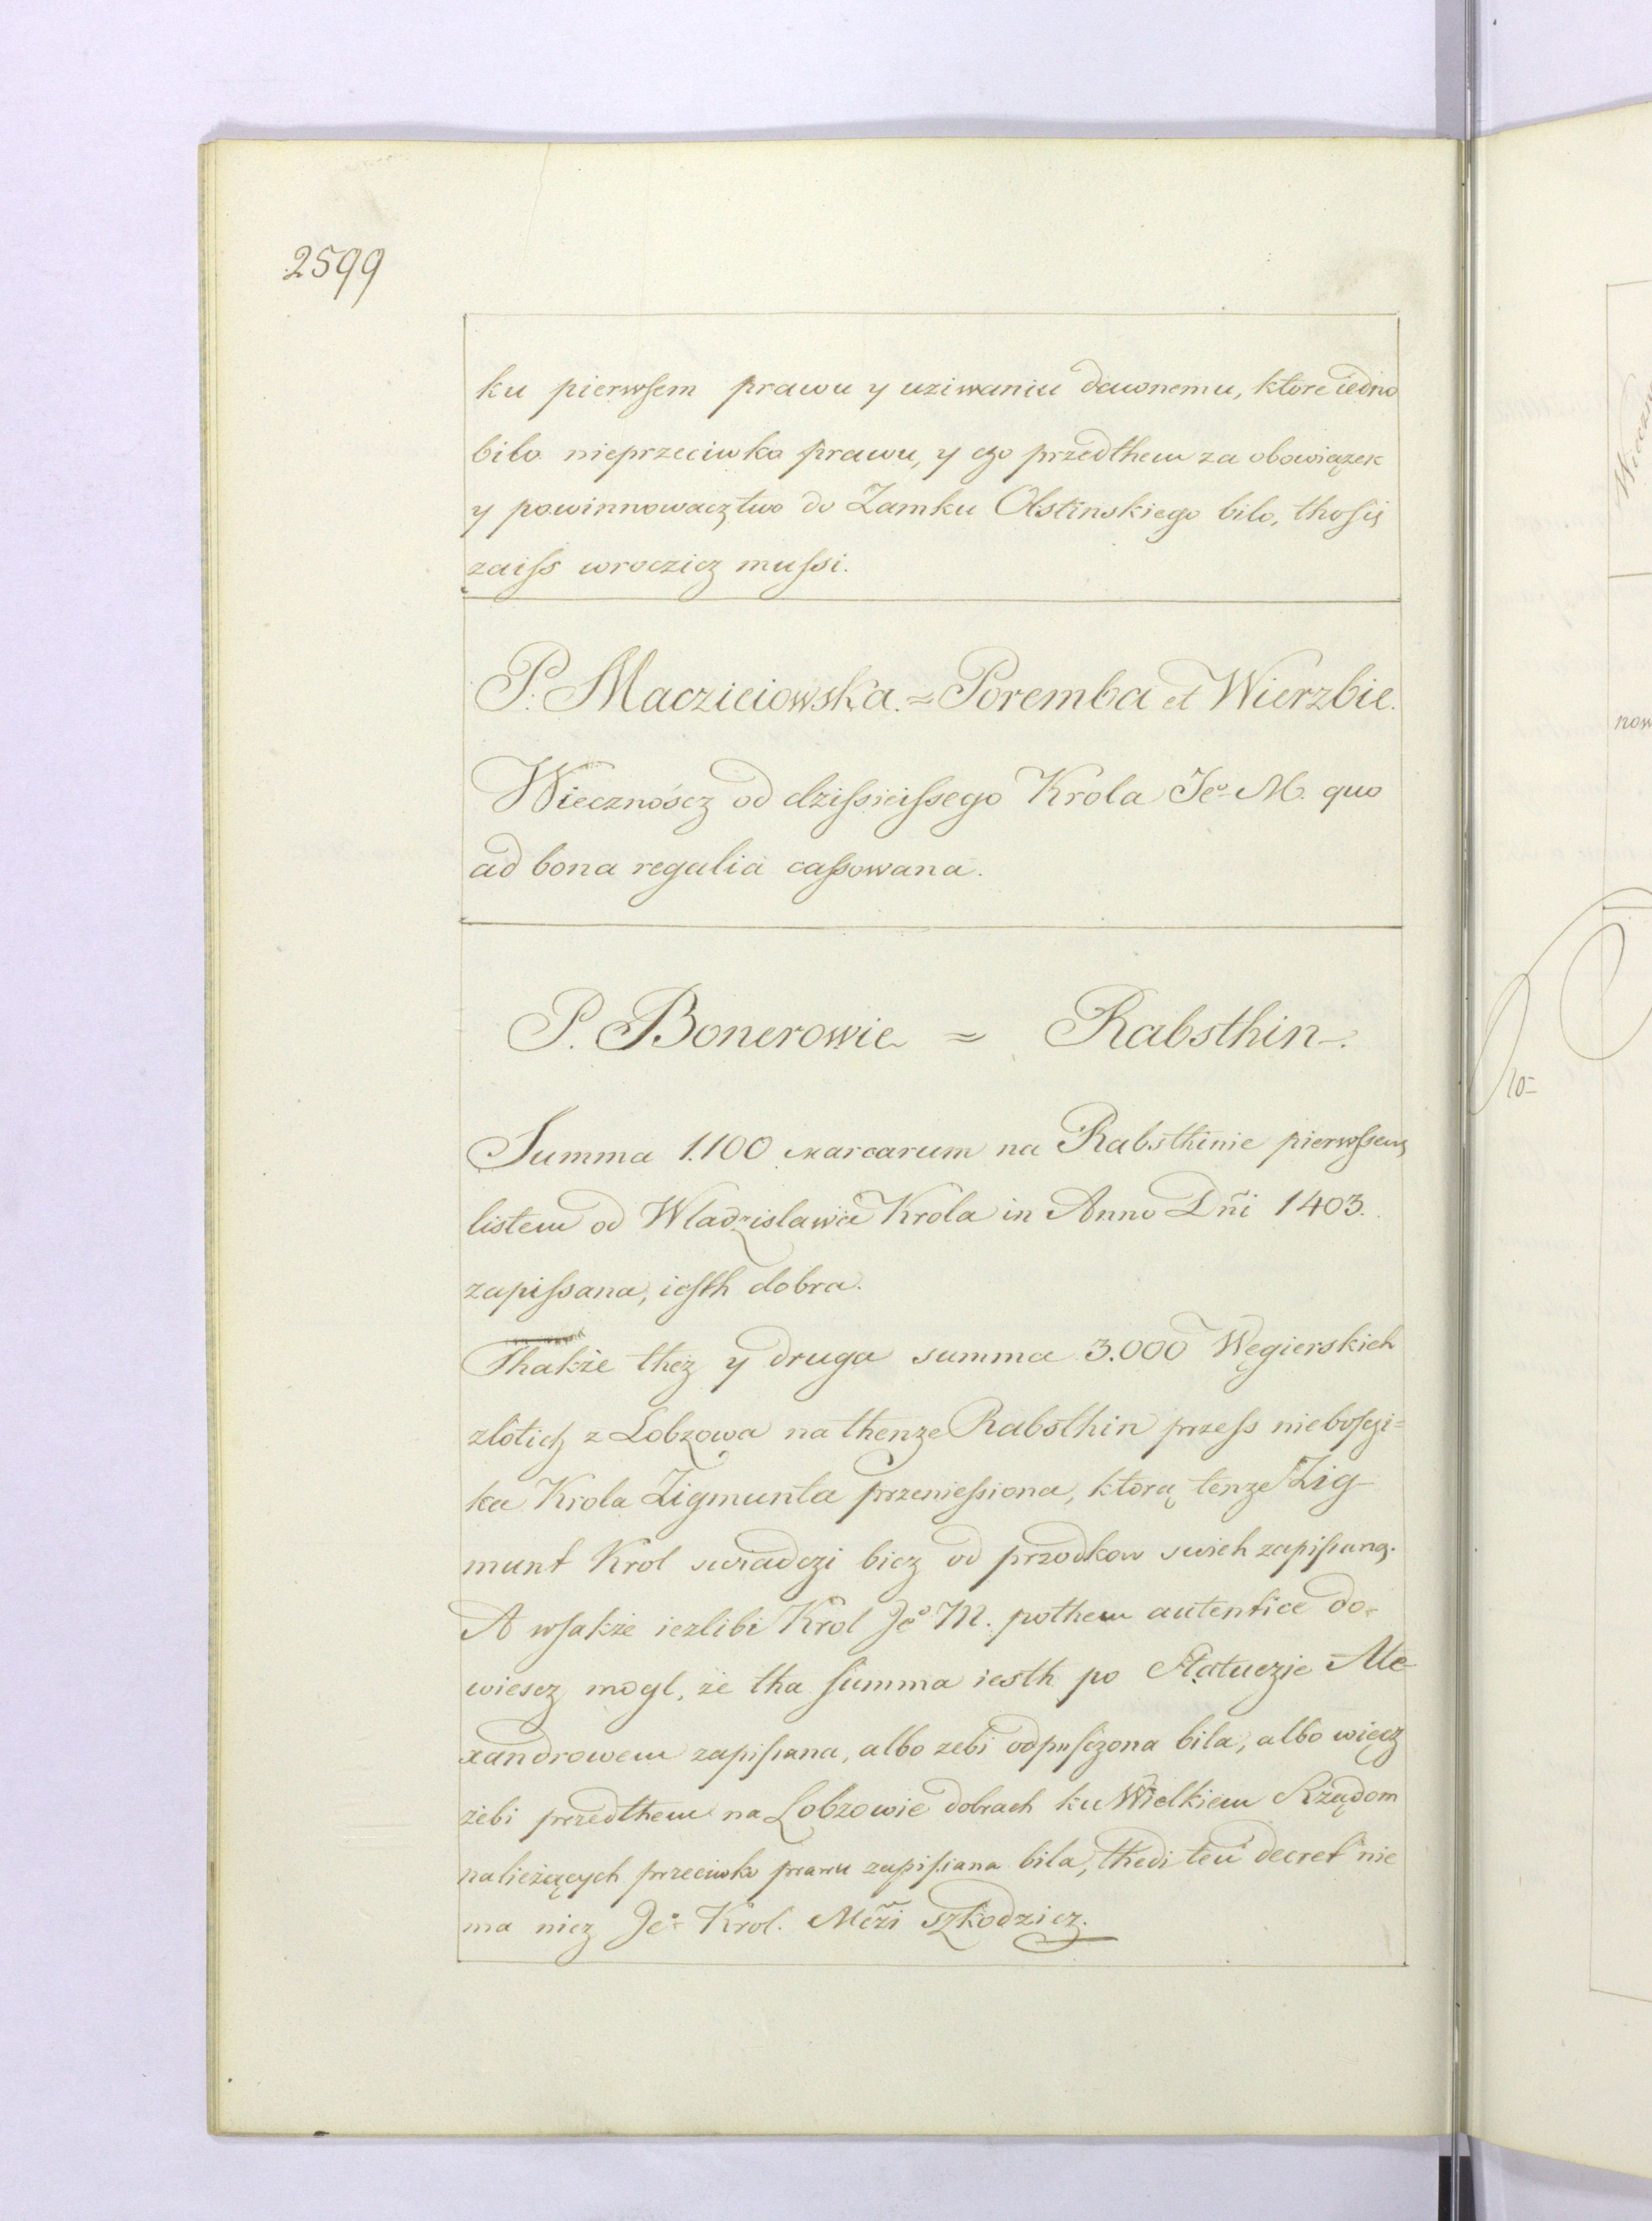 2599
ku pierwſsem prawu y uziwaniu dawnemu, które iedno
bilo nieprzeciwko prawu, y czo przedthem za obowiązek
y powinnowacztwo do Zamku Olstinskiego bilo, thosię
zaiſs wroczicz muſsi.
P. Macziciowska = Poremba et Wierzbie.
Wiecznoścz od dziſsieiſsego Krola Jeº M. quo
ad bona regalia caſsowana.
P. Bonerowie = Rabsthin.
Summa 1.100 marcarum na Rabsthinie pierwſsem
listem od Wladzislawa Krola in Anno Dñi 1403.
zapiſsana, iesth dobra.
Thakże theż y druga summa 3.000 Węgierskich
zlótich z Lobzowa na thenze Rabsthin przeſs nieboſczi=
ka Krola Zigmunta przenieſsiona, ktorą tenze Zig
munt Krol swiadczi bicz od przodkow swich zapiſsaną.
A wſakże iezlibi Krol Jeº M. pothem autentice do=
wiescz mogl, że tha summa iesth po Statuczie Ale
xandrowem zapiſsana, albo zebi odpuſczona bila, albo więcz
żebi przedthem na Lobzowie dobrach ku Wielkiem Rządom
należących przeciwko prawu zapiſsana bila, thedi ten decret nie
ma nicz Jeº Krol. Mczi szkodzicz.
now